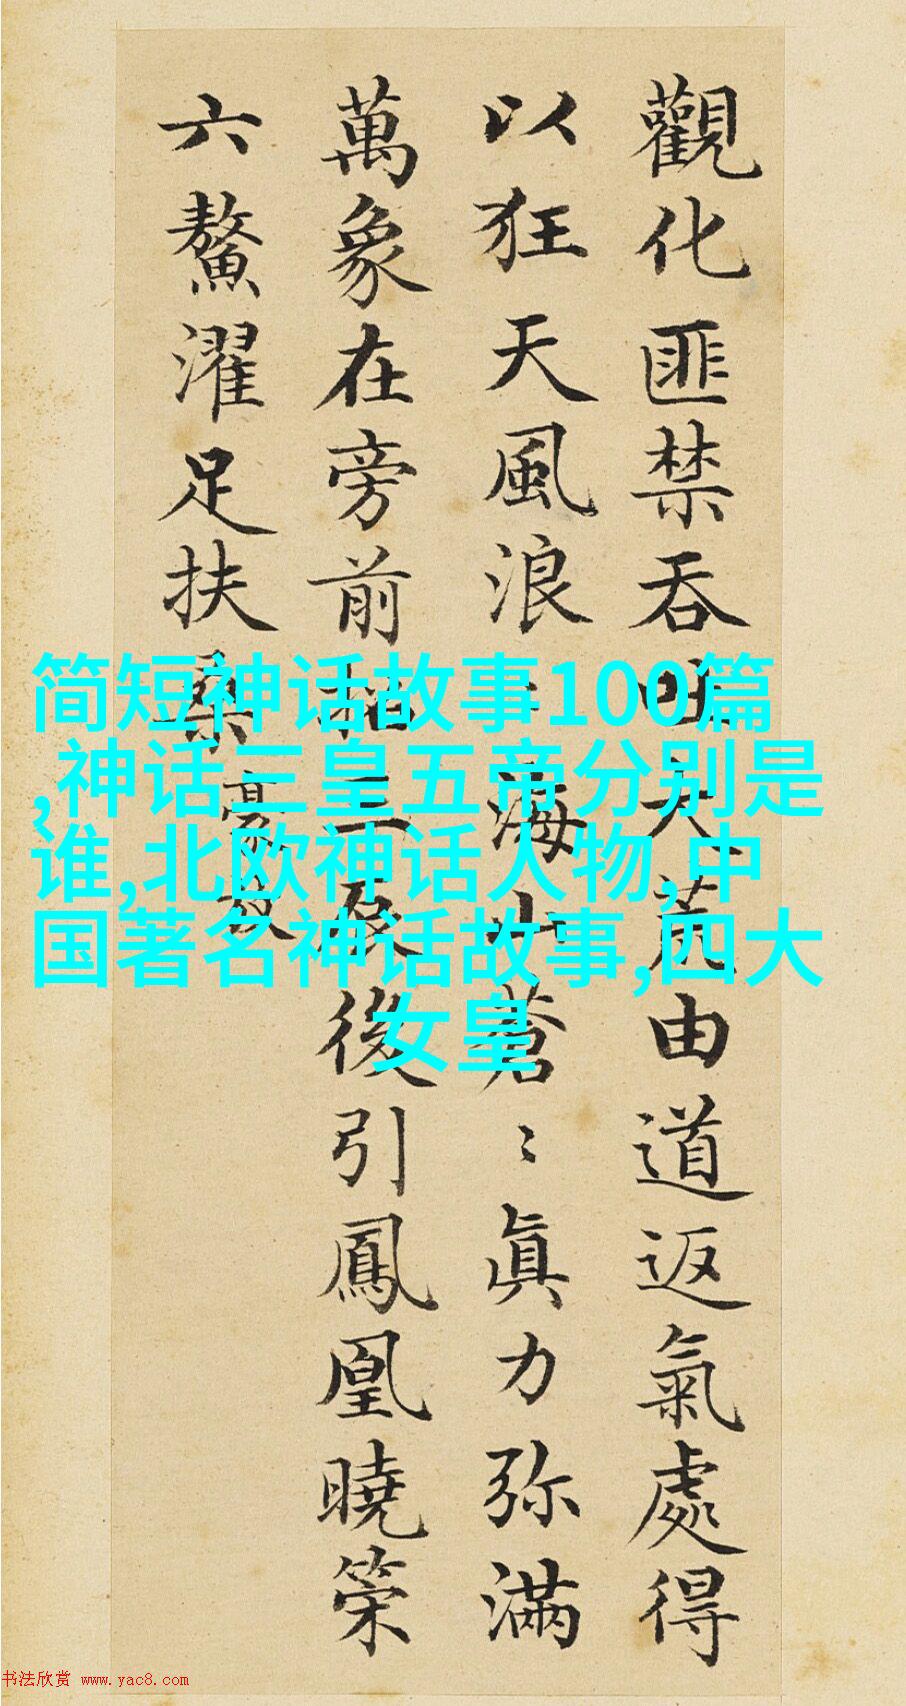 觀化匪禁吞吐大荒由道返氣處得
以狂天風浪〻海山蒼〻眞力弥滿
萬象在旁前招三辰後引鳳凰曉策
六鰲濯足扶桑
豪放
简短神话故事100篇
,神话三皇五帝分别是
谁,北欧神话人物,中
国著名神话故事,四大
女皇
书法欣赏 www.yac8.com